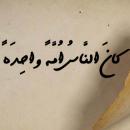 كَانَ النَّاسُ أُمَّةً وَاحِدَةً